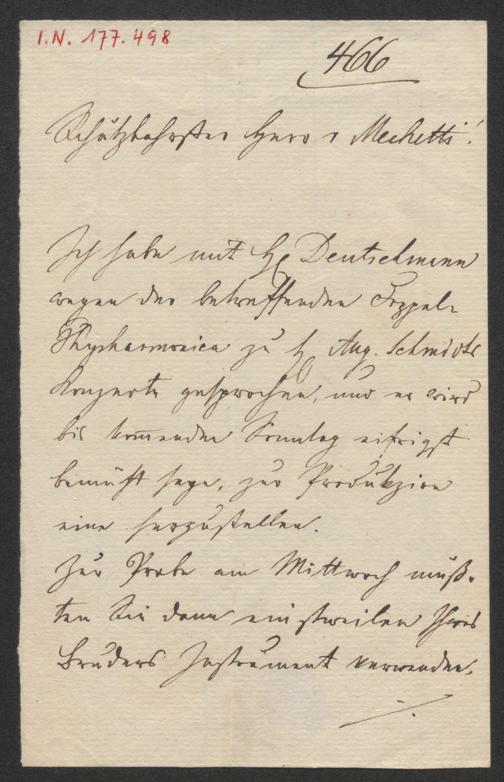 I.N. 177.498
466
Schätzbarster Herr v Mechetti!
Ich habe mit H. Deutschmann
wegen der betreffenden Doppel-
Physharmonica zu H. Aug. Schmidts
Konzerte gesprochen, und er wird
bis kom̅enden Sonntag eifrigst
bemüht seyn, zur Produkzion
eine herzustellen.
Zur Probe am Mittwoch müß-
ten Sie dann einstweilen Ihres
Bruders Instrument verwenden.